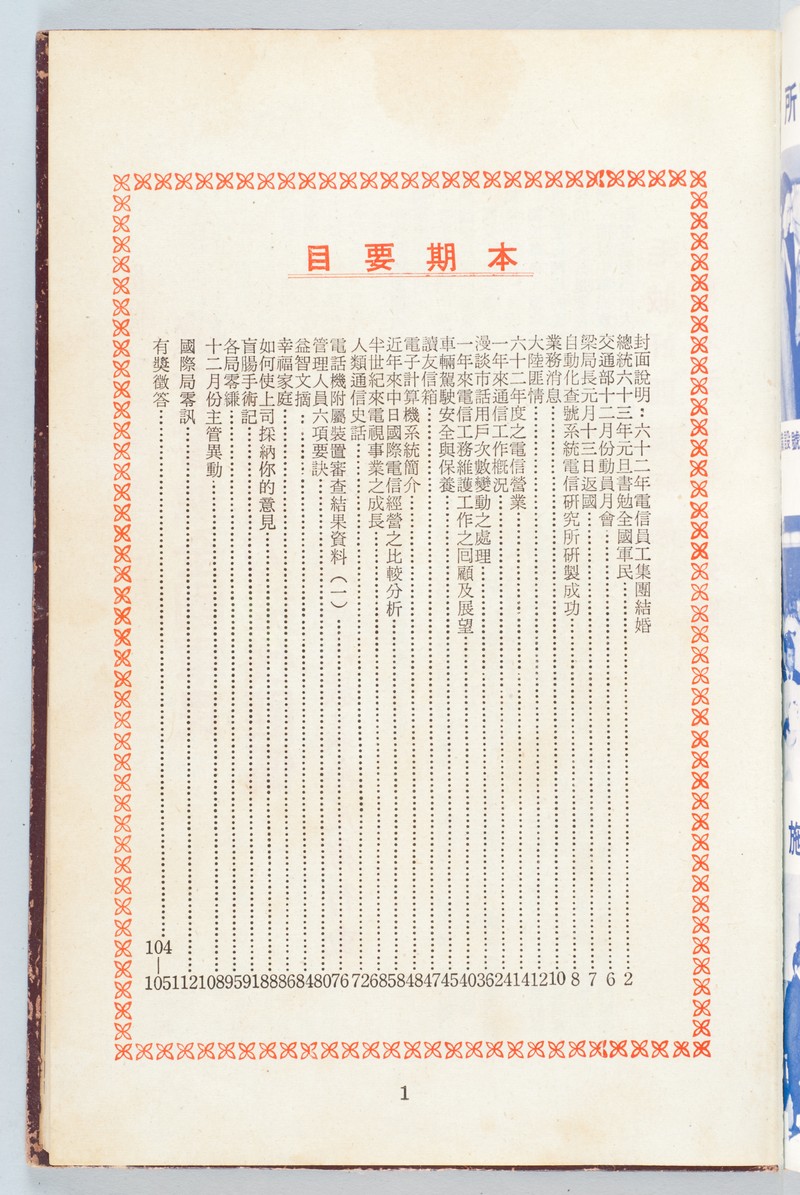 本期要目
封面說明：六十二年電信員工集團結婚
總統六十三年元旦書勉全國軍民……2
交通部十二月份動員月會……6
梁局長元月十三日返國……7
自動化查號系統電信研究所研製成功……8
業務消息……10
大陸匪情……12
六十二年度之電信營業……14
一年來通信工作概況……24
漫談市話用戶次數變動之處理……36
一年來電信工務維護工作之回顧及展望……40
車輛駕駛安全與保養……45
讀友信箱……47
電子計算機系統簡介……48
近年來中日國際電信經營之比較分析……58
半世紀來電視事業之成長……68
人類通信史話……72
電話機附屬裝置審查結果資料（一）……76
管理人員六項要訣……80
益智文摘……84
幸福家庭……86
如何使上司採納你的意見……88
盲腸手術記……91
各局零縑……95
十二月份主管異動……108
國際局零訊……112
有獎徵答……104—105
1
所
施